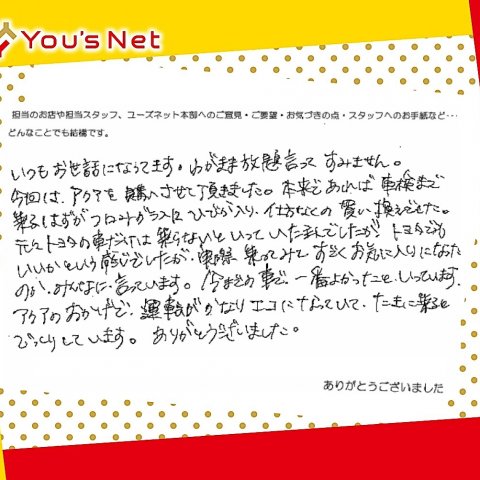 You's Net
担当のお店や担当スタッフ、ユーズネット本部へのご意見・ご要望・お気づきの点・スタッフへのお手紙など…
どんなことでも結構です。
いつもお世話になってます。わがまま放題言って すみません。
今回は、アクアを購入させて頂きました。本来であれば 車検まで
乗るはずがフロントガラスにヒビが入り、仕方なくの 買い換えでした。
元々トヨタの車だけは乗らないといっていたんでしたが トヨタでも
いいかという感じでしたが、実際 乗ってみて すごくお気に入りになった
のか、みんなに言っています。今までの車で、一番よかったと、いっています。
アクアのおかげで、運転がかなりエコになっていて、たまに乗ると
びっくりしています。ありがとうございました。
ありがとうございました